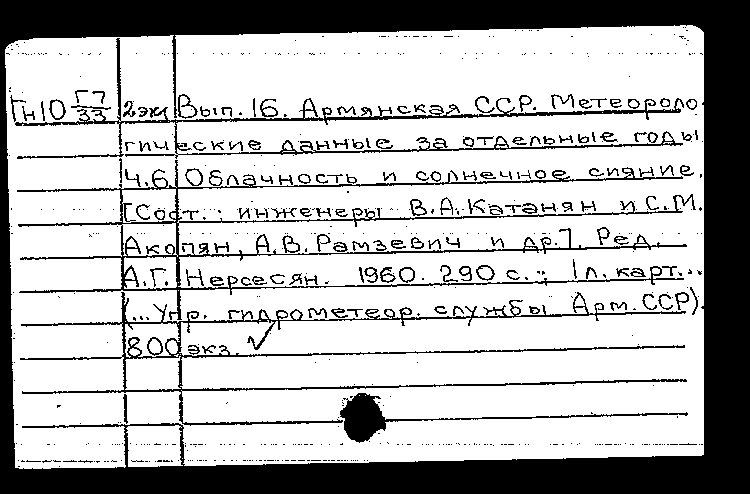 Гн10 Г7/33 2экз Вып. 16. Армянская ССР. Метеороло-
гические данные за отдельные годы
Ч.6. Облачность и солнечное сияние.
[Сост.: инженеры В.А. Катанян и С.М.
Акопян, А.В. Рамзевич и др.]. Ред.
А.Г. Нерсесян. 1960. 290 с.; 1л. карт...
(...Упр. гидрометеор. службы Арм. ССР).
800 экз. ✓